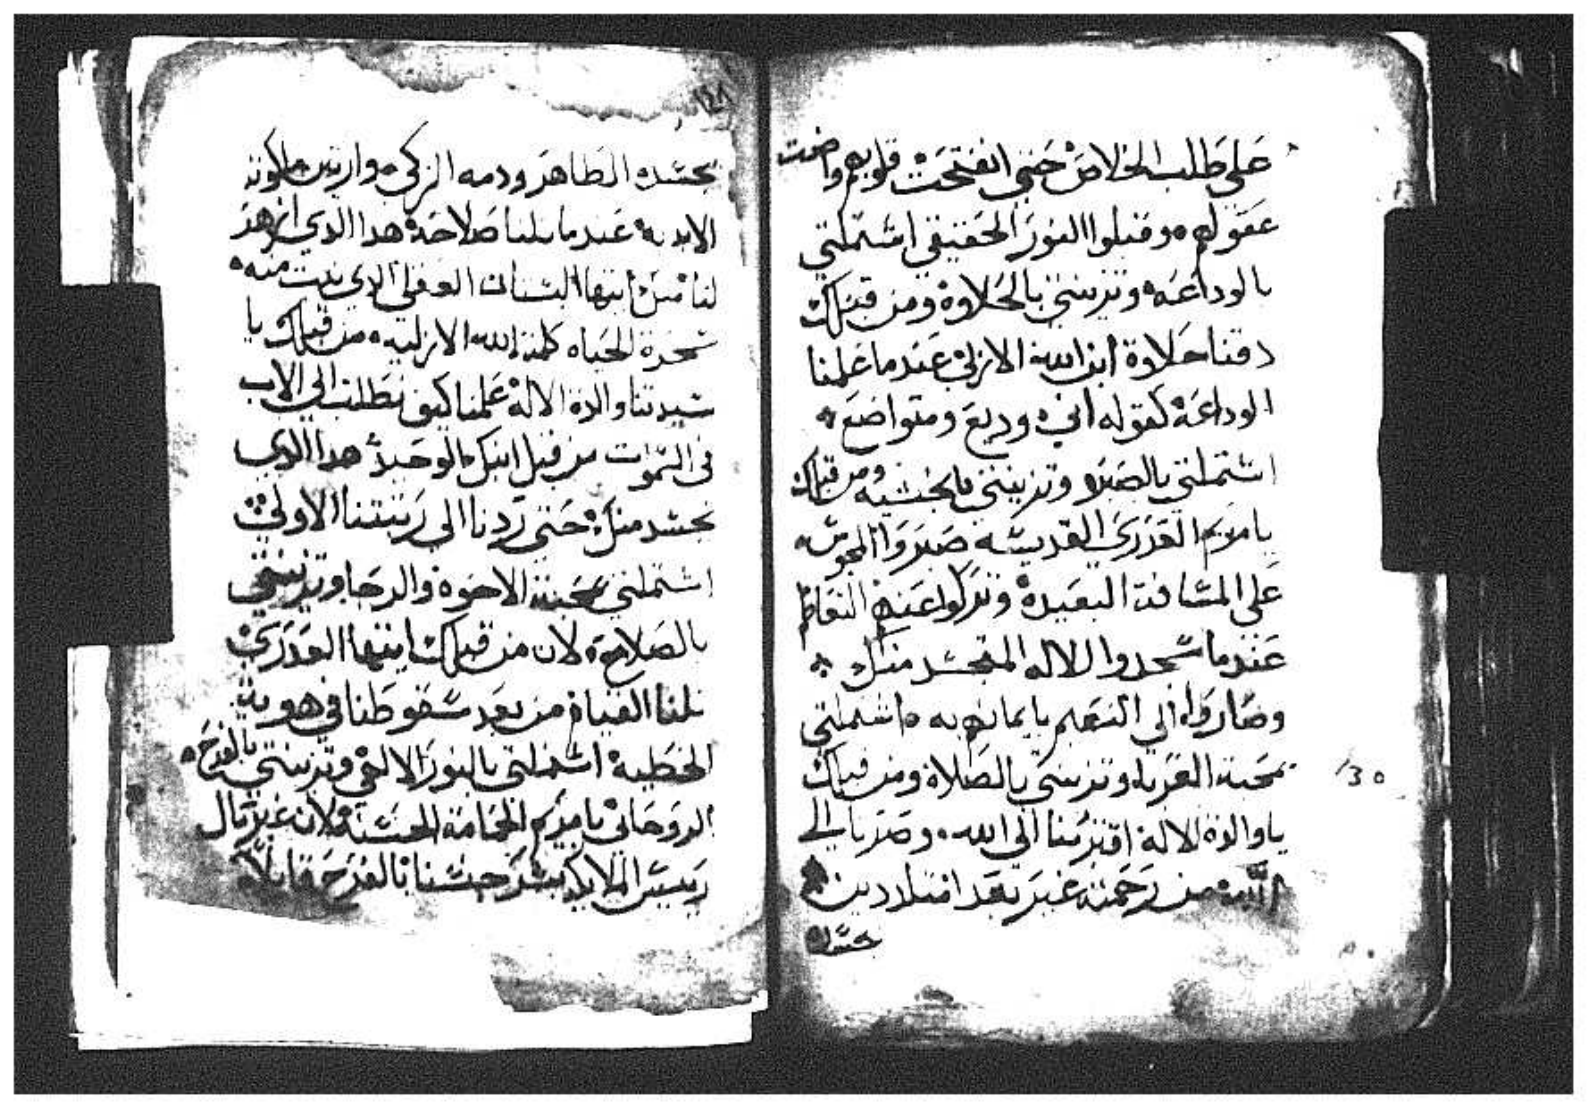 على طلب الخلاص حتى انفتحت قلوبهم واضت
عقولهم وقبلوا النور الحقيقي اشتملتي
بالوداعه وتزينتي بالحلاوه ومن قبلك
دقنا حلاوة ابن الله الازلي عندما علمنا
الوداعة كقوله اني وديع ومتواضع
اشتملتي بالصبر وتزينتي بالخشيه ومن قبلك
يا مريم العدرى القديسه صبروا المجوس
على المسافة البعيدة وتركوا عنهم
عندما سجدوا للاله المتجسد منك
وصاروا الي النعيم بايمانهم به اشتملتي
بمحبة القربا وتزينتي بالصلاة ومن قبلك
يا والدة الاله اقتربنا الي الله وصرنا الي
الله من رحمته غير بعد امتلا
130
جسد
١٤٨
بجسده الطاهر ودمه الزكي وارتين ملكوته
الابدية عندما نلنا صلاحة هدا الدي ازهر
لنا منك ايتها البستان العقلي الدي نبت منه
شجرة الحياه كلمة الله الازليه من قبلك يا
سيدتنا والدة الاله علمنا كيف نطلب الي الاب
في السموات من قبل ابنك الوحيد هدا الدي
تجسد منك حتى ردنا الى رتبتنا الاولي
اشتملتي بمحبة الاخوه والرجا وتزينتي
بالصلاح لان من قبلك ايتها العدرى
نلنا القيام من بعد سقوطنا في هوية
الخطية اشتملتي بالنور الالهي وتزينتي بالفرح
الروحاني يا مريم الحمامة الحسنة لان غبريال
رييس الملايكه بشر جنسنا بالفرح قايلا